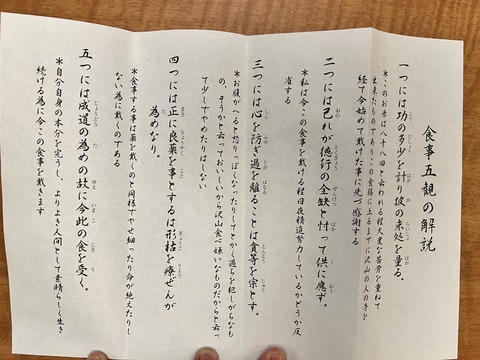 食事五観の解説
一つには功の多少を計り彼の来処を量る。
*このお米は八十八回と云われる程大変な苦労を重ねて
出来たものでありこの食膳に上るまでに沢山の人の手を
経て今始めて戴けた事に先づ感謝する
二つには己れが徳行の全缺と忖って供に應ず。
*私は今この食事を戴ける程日夜精進努力しているかどうか反
省する
三つには心を防ぎ過を離ることは貪等を宗とす。
*お腹がへると怒りっぽくなったりしてとかく過ちを犯しがちなも
の、そうかと云っておいしいから沢山食べ嫌いなものだからと云っ
て少しでやめたりはしない
四つには正に良薬を事とするは形枯を療ぜんが
為めなり。
*食事する事は薬を戴くのと同様でやせ細ったり命が絶えたりし
ない為に戴くのである
五つには成道の為めの故に今此の食を受く。
*自分自身の本分を完うし、よりよき人間として素晴らしく生き
続ける為に今この食事を戴きます